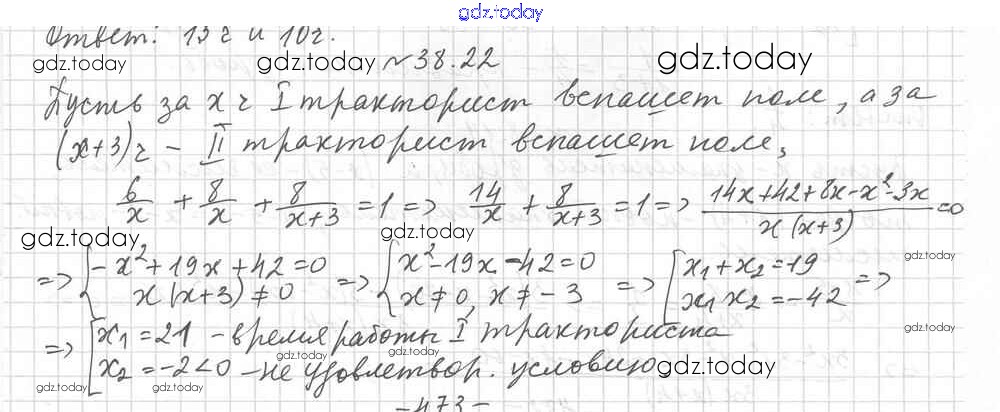 gdz.today
Ответ: 13 ч и 10 ч.
gdz.today gdz.today №38.22 gdz.today
Пусть за x ч I тракторист вспашет поле, а за
(x+3) ч - II тракторист вспашет поле,
6/x + 8/x + 8/(x+3) = 1 => 14/x + 8/(x+3) = 1 => (14x+42+8x-x²-3x)/(x(x+3)) = 0
gdz.today gdz.today
=> { -x²+19x+42=0 => { x²-19x-42=0 => [ x₁+x₂=19 =>
x(x+3)≠0 x≠0, x≠-3 x₁x₂=-42
gdz.today
=> [ x₁=21 - время работы I тракториста
gdz.today
x₂=-2<0 - не удовлетвор. условию
gdz.today gdz.today gdz.today
gdz.today gdz.today gdz.today
-473-